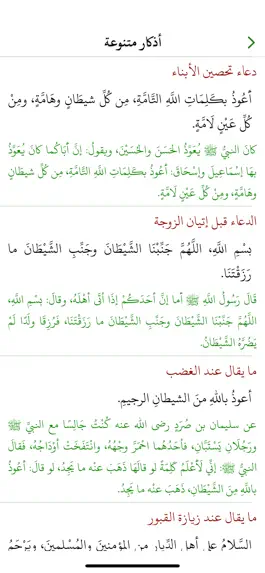 أذكار متنوعة
دعاء تحصين الأبناء
أَعُوذُ بكَلِمَاتِ اللَّهِ التَّامَّةِ، مِن كُلِّ شيطَانٍ وهَامَّةٍ، ومِنْ
كُلِّ عَيْنٍ لَامَّةٍ.
كانَ النبيُّ ﷺ يُعَوِّذُ الحَسَنَ والحُسَيْنَ، ويقولُ: إنَّ أَبَاكُما كانَ يُعَوِّذُ
بهَا إسْمَاعِيلَ وإسْحَاقَ: أَعُوذُ بكَلِمَاتِ اللَّهِ التَّامَّةِ، مِن كُلِّ شيطَانٍ
وهَامَّةٍ، ومِنْ كُلِّ عَيْنٍ لَامَّةٍ.
الدعاء قبل إتيان الزوجة
بِسْمِ اللَّهِ، اللَّهُمَّ جَنِّبْنَا الشَّيْطَانَ وجَنِّبِ الشَّيْطَانَ ما
رَزَقْتَنَا.
قَالَ رَسُولُ اللَّهِ ﷺ أما إنَّ أحَدَكُمْ إذَا أتَى أهْلَهُ، وقالَ: بسْمِ اللَّهِ،
اللَّهُمَّ جَنِّبْنَا الشَّيْطَانَ وجَنِّبِ الشَّيْطَانَ ما رَزَقْتَنَا، فَرُزِقَا ولَدًا لَمْ
يَضُرَّهُ الشَّيْطَانُ.
ما يقال عند الغضب
أعوذُ باللهِ مِنَ الشيطانِ الرجيمِ.
عن سليمان بن صُرَدٍ رضى الله عنه كُنْتُ جَالِسًا مع النبيِّ ﷺ
ورَجُلَانِ يَسْتَبَّانِ، فأحَدُهُما احْمَرَّ وجْهُهُ، وانْتَفَخَتْ أوْدَاجُهُ، فَقالَ
النبيُّ ﷺ: إنِّي لَأَعْلَمُ كَلِمَةً لو قالَهَا ذَهَبَ عنْه ما يَجِدُ، لو قالَ: أعُوذُ
باللَّهِ مِنَ الشَّيْطَانِ، ذَهَبَ عنْه ما يَجِدُ.
ما يقال عند زيارة القبور
السَّلَامُ علَى أَهْلِ الدِّيَارِ مِنَ المُؤْمِنِينَ والمُسْلِمِينَ، وَيَرْحَمُ